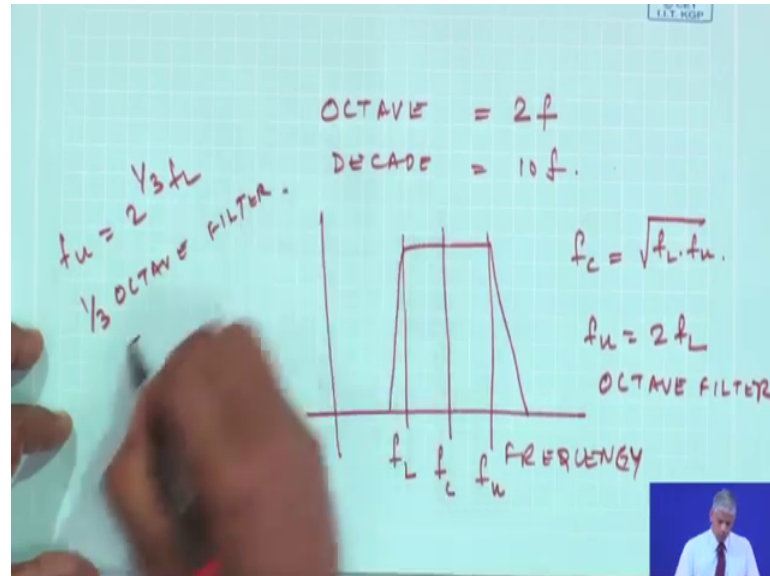 © CET
I.I.T. KGP
OCTAVE = 2f
DECADE = 10f.
fu = 2^1/3 fL
1/3 OCTAVE FILTER.
fc = √fL.fu.
fu = 2fL
OCTAVE FILTER
fL fc fu FREQUENCY